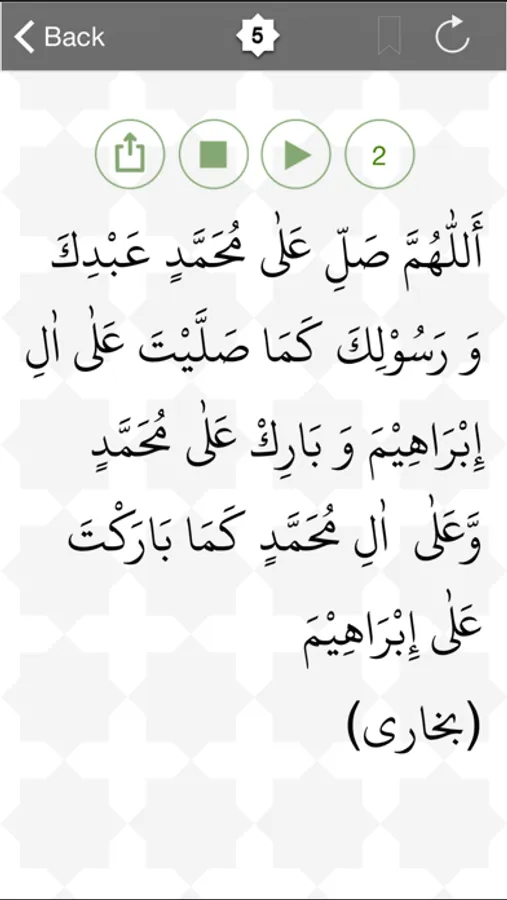 Back
5
2
أَللّٰهُمَّ صَلِّ عَلٰى مُحَمَّدٍ عَبْدِكَ
وَ رَسُوْلِكَ كَمَا صَلَّيْتَ عَلٰى اٰلِ
إِبْرَاهِيْمَ وَ بَارِكْ عَلٰى مُحَمَّدٍ
وَّعَلٰى اٰلِ مُحَمَّدٍ كَمَا بَارَكْتَ
عَلٰى إِبْرَاهِيْمَ
(بخارى)